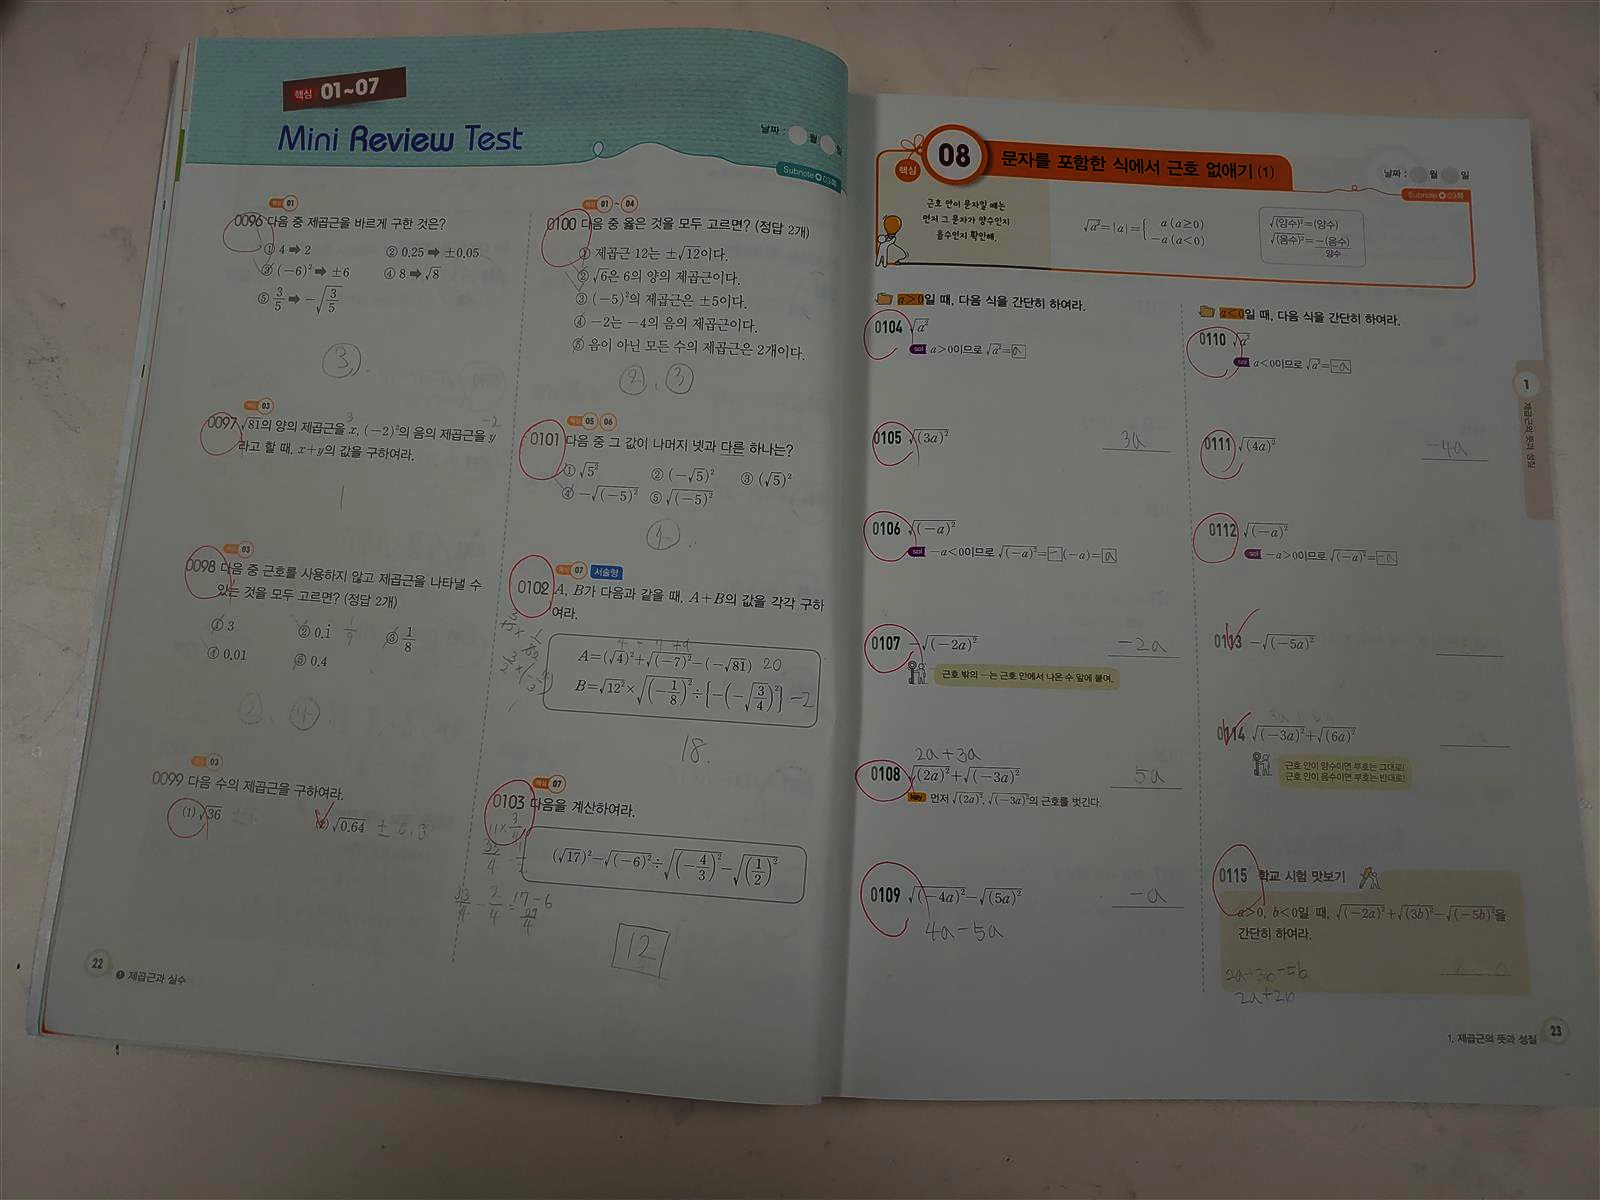 핵심 01~07
Mini Review Test
날짜 : 월 일
Subnote 03쪽
핵심 01
0096 다음 중 제곱근을 바르게 구한 것은?
① 4 ➡ 2 ② 0.25 ➡ ±0.05
③ (−6)² ➡ ±6 ④ 8 ➡ √8
⑤ 3/5 ➡ −√(3/5)
③
핵심 03
0097 √81의 양의 제곱근을 x, (−2)²의 음의 제곱근을 y
라고 할 때, x+y의 값을 구하여라.
3
-2
1
핵심 03
0098 다음 중 근호를 사용하지 않고 제곱근을 나타낼 수
있는 것을 모두 고르면? (정답 2개)
① 3 ② 0.i 1/9 ③ 1/8
④ 0.01 ⑤ 0.4
②, ④
핵심 03
0099 다음 수의 제곱근을 구하여라.
(1) √36 (2) √0.64
22 ❶ 제곱근과 실수
핵심 01 ~ 04
0100 다음 중 옳은 것을 모두 고르면? (정답 2개)
① 제곱근 12는 ±√12이다.
② √6은 6의 양의 제곱근이다.
③ (−5)²의 제곱근은 ±5이다.
④ −2는 −4의 음의 제곱근이다.
⑤ 음이 아닌 모든 수의 제곱근은 2개이다.
②, ③
핵심 05 06
0101 다음 중 그 값이 나머지 넷과 다른 하나는?
① √5² ② (−√5)² ③ (√5)²
④ −√(−5)² ⑤ √(−5)²
④
핵심 07 서술형
0102 A, B가 다음과 같을 때, A+B의 값을 각각 구하
여라.
A=(√4)²+√(−7)²−(−√81) 20
B=√12²×√(−1/8)²÷{−(−√(3/4))²} −2
18.
핵심 07
0103 다음을 계산하여라.
(√17)²−√(−6)²÷√(−4/3)²−√(1/2)²
12
핵심 08 문자를 포함한 식에서 근호 없애기 (1)
날짜 : 월 일
Subnote 03쪽
근호 안이 문자일 때는
먼저 그 문자가 양수인지
음수인지 확인해.
√a²=|a|={ a (a≥0)
−a (a<0)
√(양수)²=(양수)
√(음수)²=−(음수)
양수
a>0일 때, 다음 식을 간단히 하여라.
0104 √a²
sol a>0이므로 √a²=a
0105 √(3a)² 3a
0106 √(−a)²
sol −a<0이므로 √(−a)²=−(−a)=a
0107 −√(−2a)² −2a
근호 밖의 −는 근호 안에서 나온 수 앞에 붙여.
2a+3a
0108 √(2a)²+√(−3a)² 5a
key 먼저 √(2a)², √(−3a)²의 근호를 벗긴다.
0109 √(−4a)²−√(5a)² −a
4a−5a
a<0일 때, 다음 식을 간단히 하여라.
0110 √a²
sol a<0이므로 √a²=−a
0111 √(4a)² −4a
0112 √(−a)²
sol −a>0이므로 √(−a)²=−a
0113 −√(−5a)²
0114 √(−3a)²+√(6a)²
근호 안이 양수이면 부호는 그대로!
근호 안이 음수이면 부호는 반대로!
0115 학교 시험 맛보기
a>0, b<0일 때, √(−2a)²+√(3b)²−√(−5b)²을
간단히 하여라.
2a+2b
1
제곱근의 뜻과 성질
1. 제곱근의 뜻과 성질 23